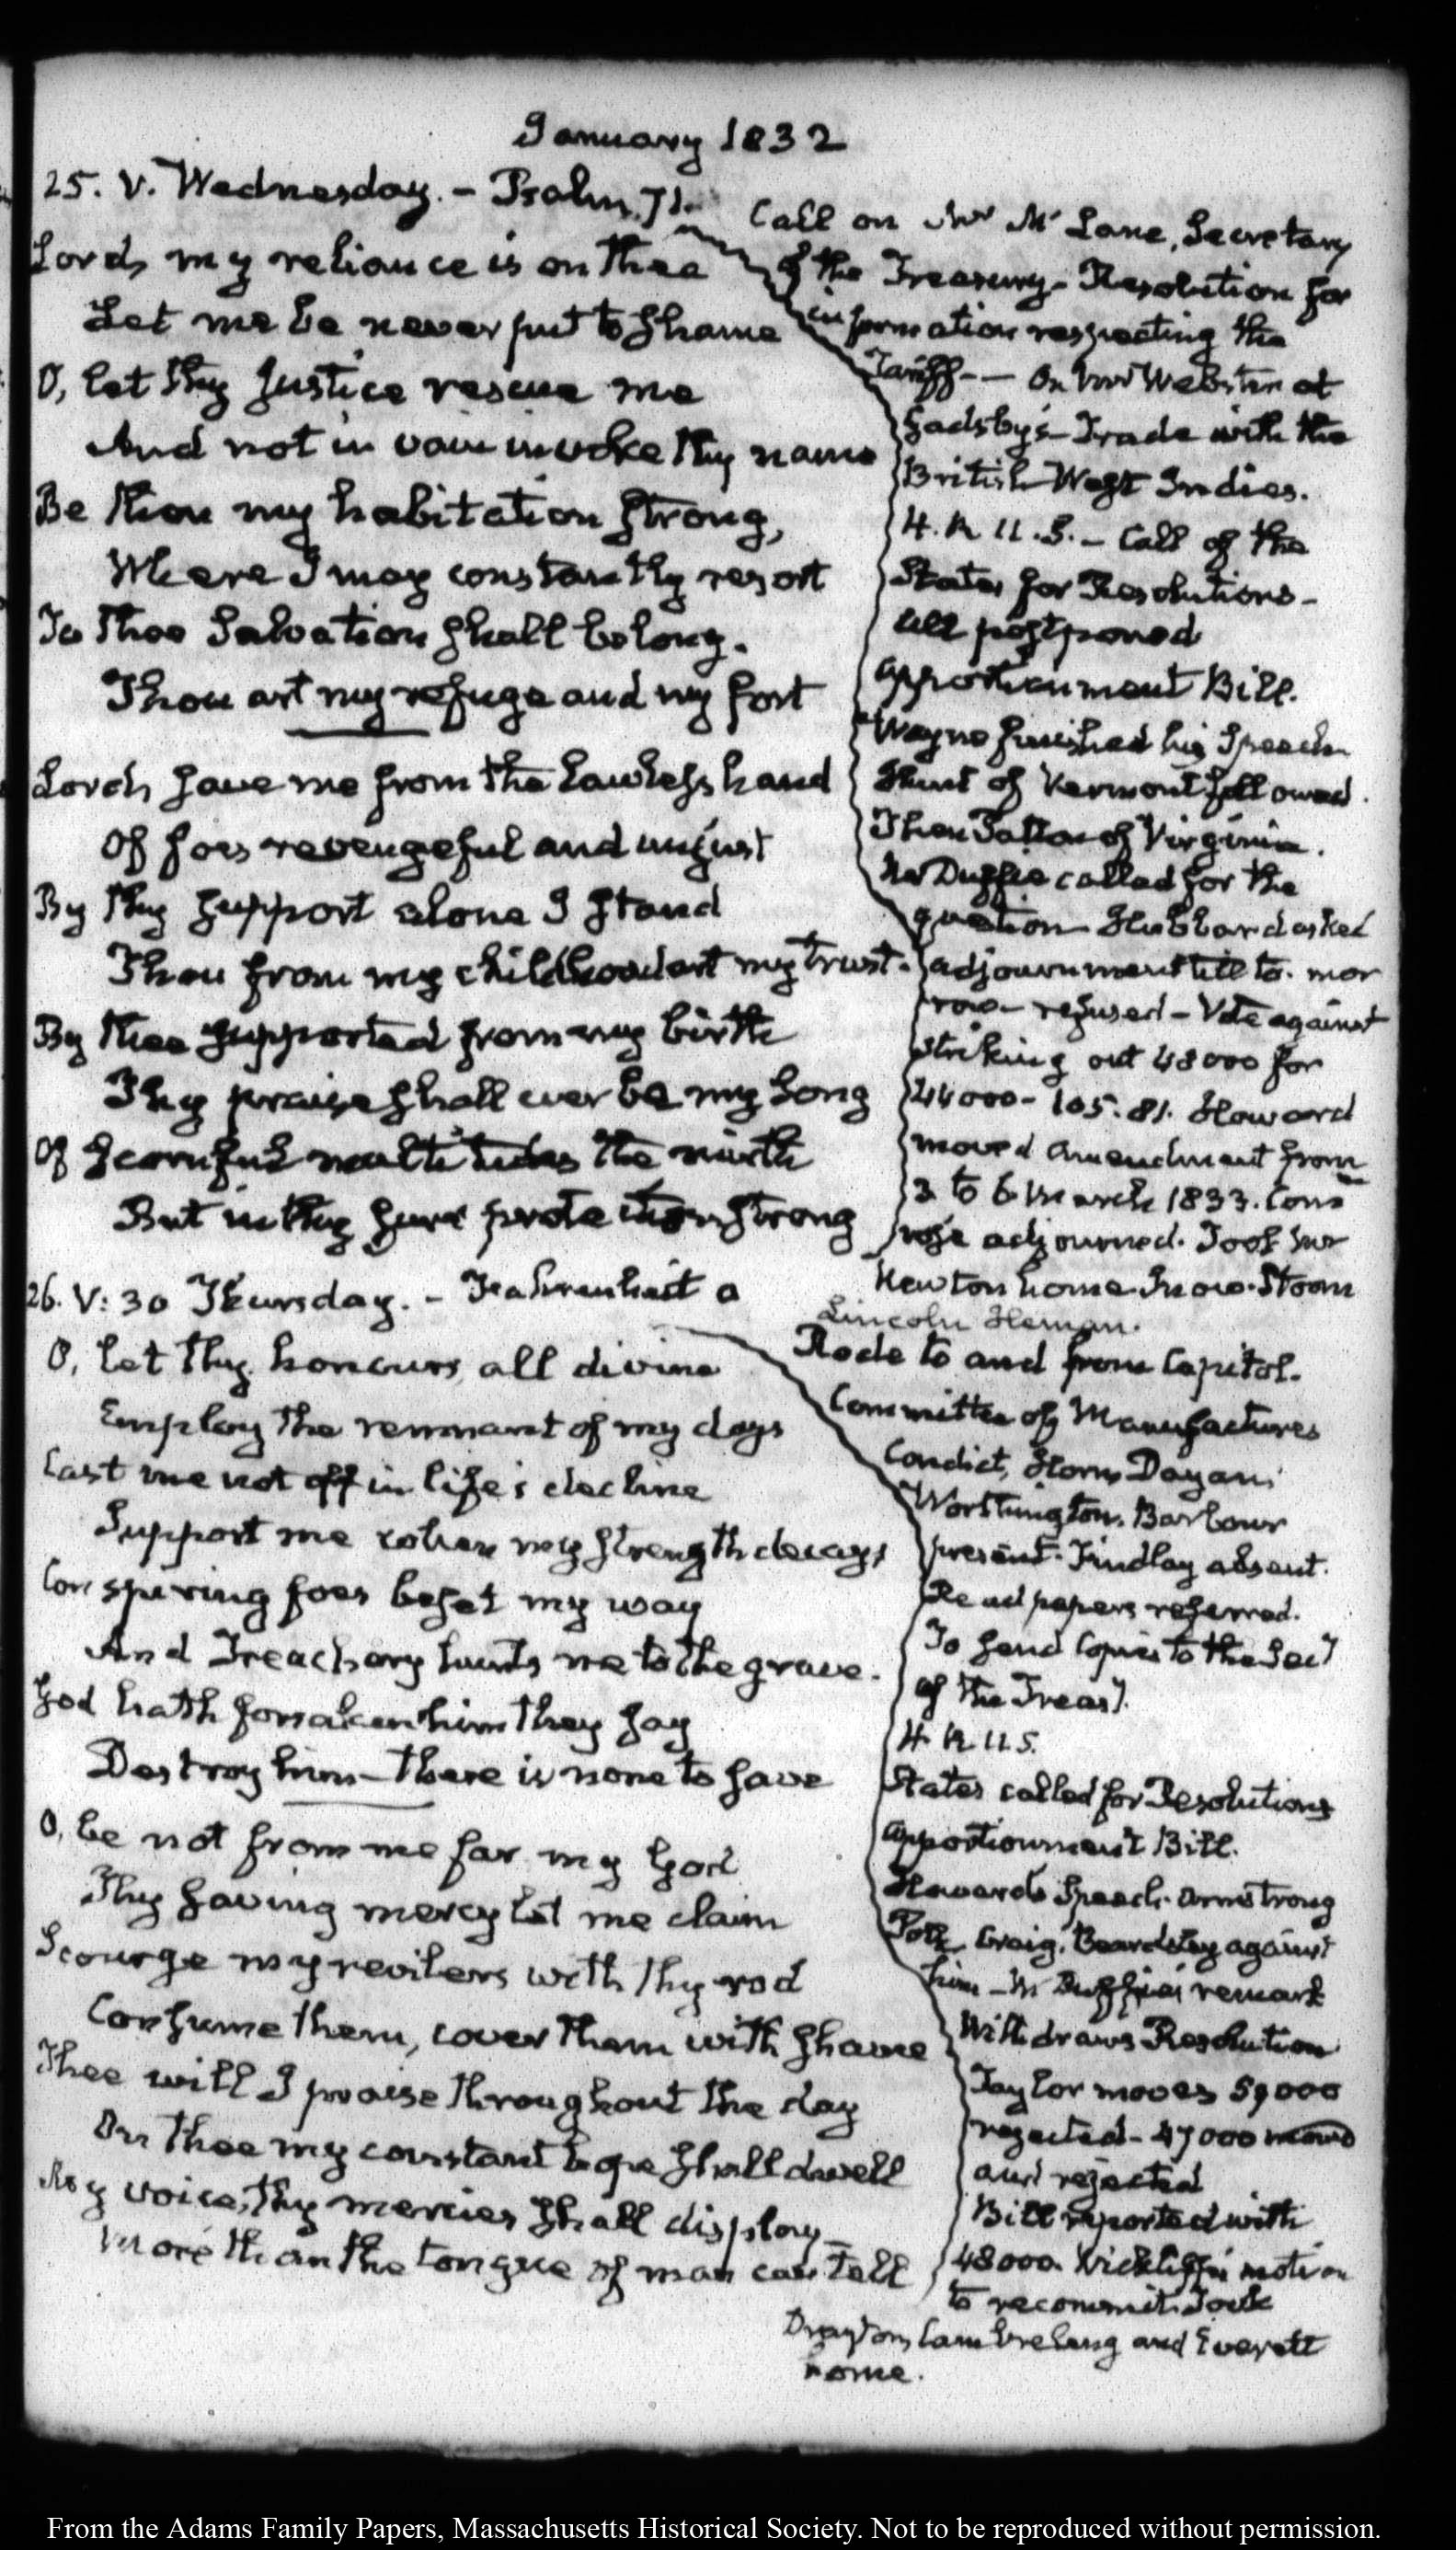 January 1832
25. V. Wednesday. - Psalm 71.
Lord, my reliance is on thee
Let me be never put to shame
O, let thy justice rescue me
And not in vain invoke thy name
Be thou my habitation strong,
Where I may constantly resort
To Thee Salvation shall belong.
Thou art my refuge and my fort
Lord, save me from the Lawless hand
Of foes revengeful and unjust
By thy support alone I stand
Thou from my childhood art my trust.
By thee supported from my birth
Thy praise shall ever be my Song
Of scornful multitudes the mirth
But in thy sure protection strong
Call on Mr McLane, Secretary
of the Treasury - Resolution for
information respecting the
Tariff - - On Mr Webster at
Gadsby's - Trade with the
British West Indies.
H. R U. S. - Call of the
States for Resolutions -
all postponed
Apportionment Bill.
Wayne finished his Speech
Hunt of Vermont followed.
Then Patton of Virginia.
McDuffie called for the
question - Hubbard asked
adjournment till to-mor
row - refused - Vote against
striking out 48000 for
44000 - 105. 81. Howard
moved amendment from
3 to 6 March 1833. Com
rose adjourned. Took Mr
Newton home. Snow-Storm
26. V: 30 Thursday. - Fahrenheit 0
O, let thy honours, all divine
Employ the remnant of my days
Cast me not off in life's decline
Support me when my strength decays
Conspiring foes beset my way
And Treachery hunts me to the grave.
God hath forsaken him they say
Destroy him - there is none to save
O, be not from me far my God
Thy saving mercy let me claim
Scourge my revilers with thy rod
Consume them, cover them with shame
Thee will I praise throughout the day
On thee my constant hope shall dwell
My voice, thy mercies shall display -
More than the tongue of man can tell
Lincoln Heman.
Rode to and from Capitol.
Committee of Manufactures
Condict, Horn, Dayan,
Worthington, Barbour
present. Findlay absent.
Read papers referred.
To send Copies to the Secy
of the Treasy.
H R U S.
States called for Resolutions
Apportionment Bill.
Howard's Speech. Armstrong
Polk, Craig, Beardsley against
him - McDuffie's remark
Withdraws Resolution
Taylor moves 59000
rejected - 47000 moved
and rejected
Bill reported with
48000. Wickliffe's motion
to recommit. Took
Drayton, Cambreleng and Everett
home.
From the Adams Family Papers, Massachusetts Historical Society. Not to be reproduced without permission.